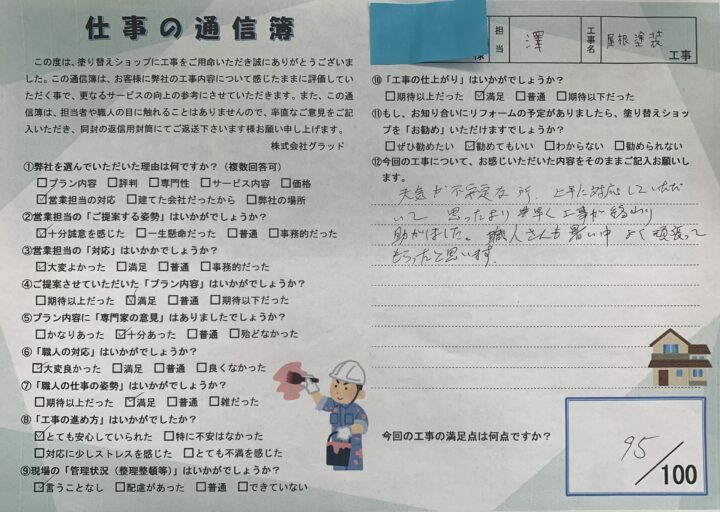 仕事の通信簿
この度は、塗り替えショップに工事をご用命いただき誠にありがとうございま
した。この通信簿は、お客様に弊社の工事内容について感じたままに評価してい
ただく事で、更なるサービスの向上の参考にさせていただきます。また、この通
信簿は、担当者や職人の目に触れることはありませんので、率直なご意見をご記
入いただき、同封の返信用封筒にてご返送下さいます様お願い申し上げます。
株式会社グラッド
①弊社を選んでいただいた理由は何ですか?(複数回答可)
□プラン内容 □評判 □専門性 □サービス内容 □価格
☑営業担当の対応 □建てた会社だったから □弊社の場所
②営業担当の「ご提案する姿勢」はいかがでしょうか?
☑十分誠意を感じた □一生懸命だった □普通 □事務的だった
③営業担当の「対応」はいかかでしょうか?
☑大変よかった □満足 □普通 □事務的だった
④ご提案させていただいた「プラン内容」はいかがでしょうか?
□期待以上だった ☑満足 □普通 □期待以下だった
⑤プラン内容に「専門家の意見」はありましたでしょうか?
□かなりあった ☑十分あった □普通 □殆どなかった
⑥「職人の対応」はいかがでしょうか?
☑大変良かった □満足 □普通 □良くなかった
⑦「職人の仕事の姿勢」はいかがでしょうか?
□期待以上だった ☑満足 □普通 □雑だった
⑧「工事の進め方」はいかがでしたか?
☑とても安心していられた □特に不安はなかった
□対応に少しストレスを感じた □とても不満を感じた
⑨現場の「管理状況(整理整頓等)」はいかがでしょうか?
☑言うことなし □配慮があった □普通 □できていない
様 担当 澤 工事名 屋根塗装 工事
⑩「工事の仕上がり」はいかがでしょうか?
□期待以上だった ☑満足 □普通 □期待以下だった
⑪もし、お知り合いにリフォームの予定がありましたら、塗り替えショッ
プを「お勧め」いただけますでしょうか?
□ぜひ勧めたい ☑勧めてもいい □わからない □勧められない
⑫今回の工事について、お感じいただいた内容をそのままご記入お願いし
ます。
天気が不安定な所、上手に対応していただ
いて 思ったより 早く工事が終わり
助かりました。職人さんも暑い中 よく頑張って
もらったと思います。
今回の工事の満足点は何点ですか?
95/100